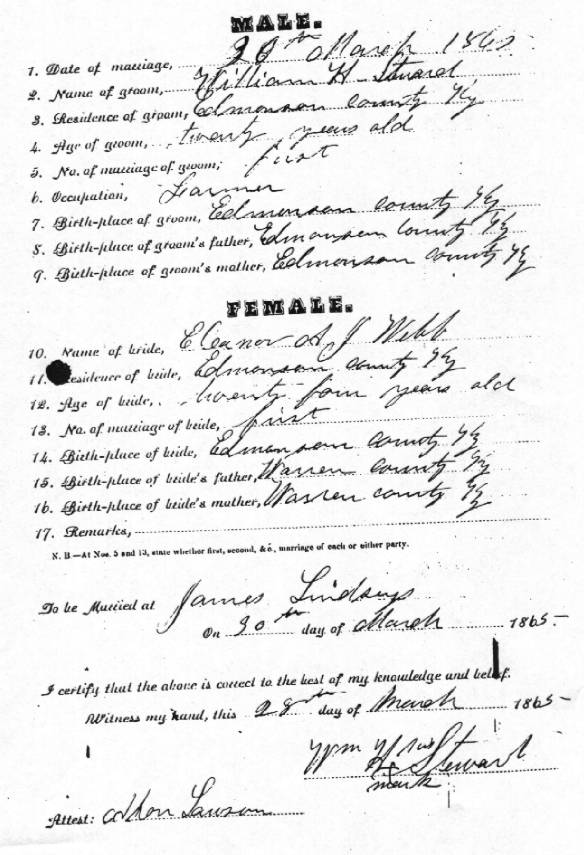 MALE.
1. Date of marriage, 30th March 1865
2. Name of groom, William H Steward
3. Residence of groom, Edmonson County Ky
4. Age of groom, twenty years old
5. No. of marriage of groom, first
6. Occupation, Farmer
7. Birth-place of groom, Edmonson County Ky
8. Birth-place of groom's father, Edmonson County Ky
9. Birth-place of groom's mother, Edmonson County Ky
FEMALE.
10. Name of bride, Eleanor A J Webb
11. Residence of bride, Edmonson County Ky
12. Age of bride, twenty four years old
13. No. of marriage of bride, first
14. Birth-place of bride, Edmonson County Ky
15. Birth-place of bride's father, Warren County Ky
16. Birth-place of bride's mother, Warren county Ky
17. Remarks,
N. B.—At Nos. 5 and 13, state whether first, second, &c., marriage of each or either party.
To be Married at James Lindseys
On 30th day of March 1865
I certify that the above is correct to the best of my knowledge and belief.
Witness my hand, this 28th day of March 1865
Wm H his Stewart
mark
Attest: Lawson